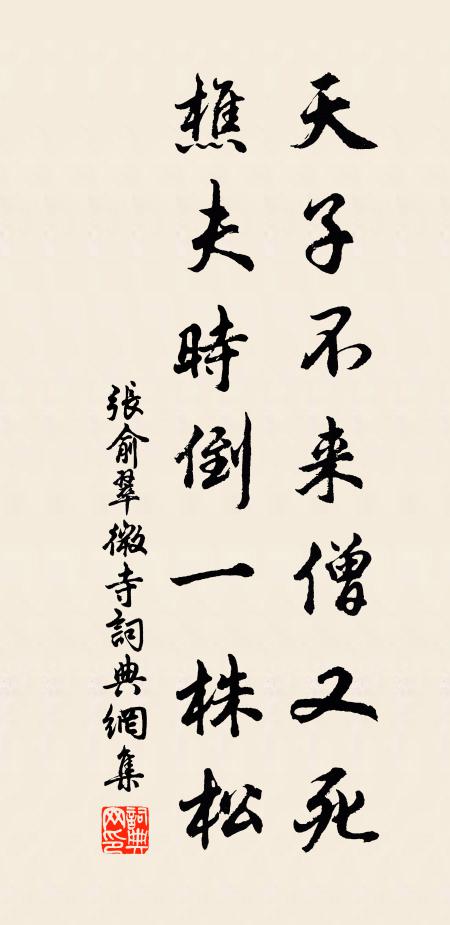 天子不来僧又死
樵夫時倒一株松
張俞翠微寺詞典網集
詞典網印